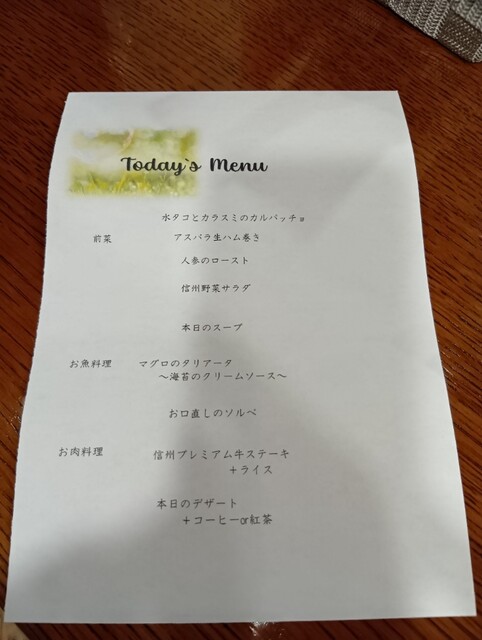 Today's Menu
水タコとカラスミのカルパッチョ
前菜 アスパラ生ハム巻き
人参のロースト
信州野菜サラダ
本日のスープ
お魚料理 マグロのタリアータ
～海苔のクリームソース～
お口直しのソルベ
お肉料理 信州プレミアム牛ステーキ
+ライス
本日のデザート
+コーヒーor紅茶